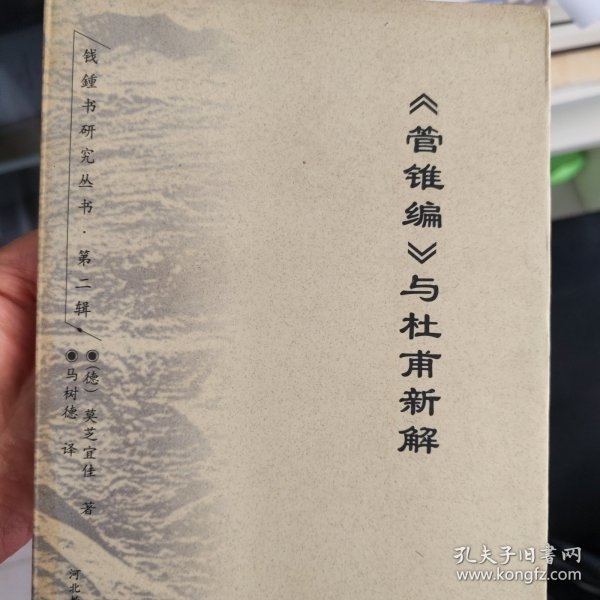 《管锥编》与杜甫新解
钱鍾书研究丛书·第二辑
◉(德)莫芝宜佳 著
◉马树德 译
河北
孔夫子旧书网
www.kongfz.com